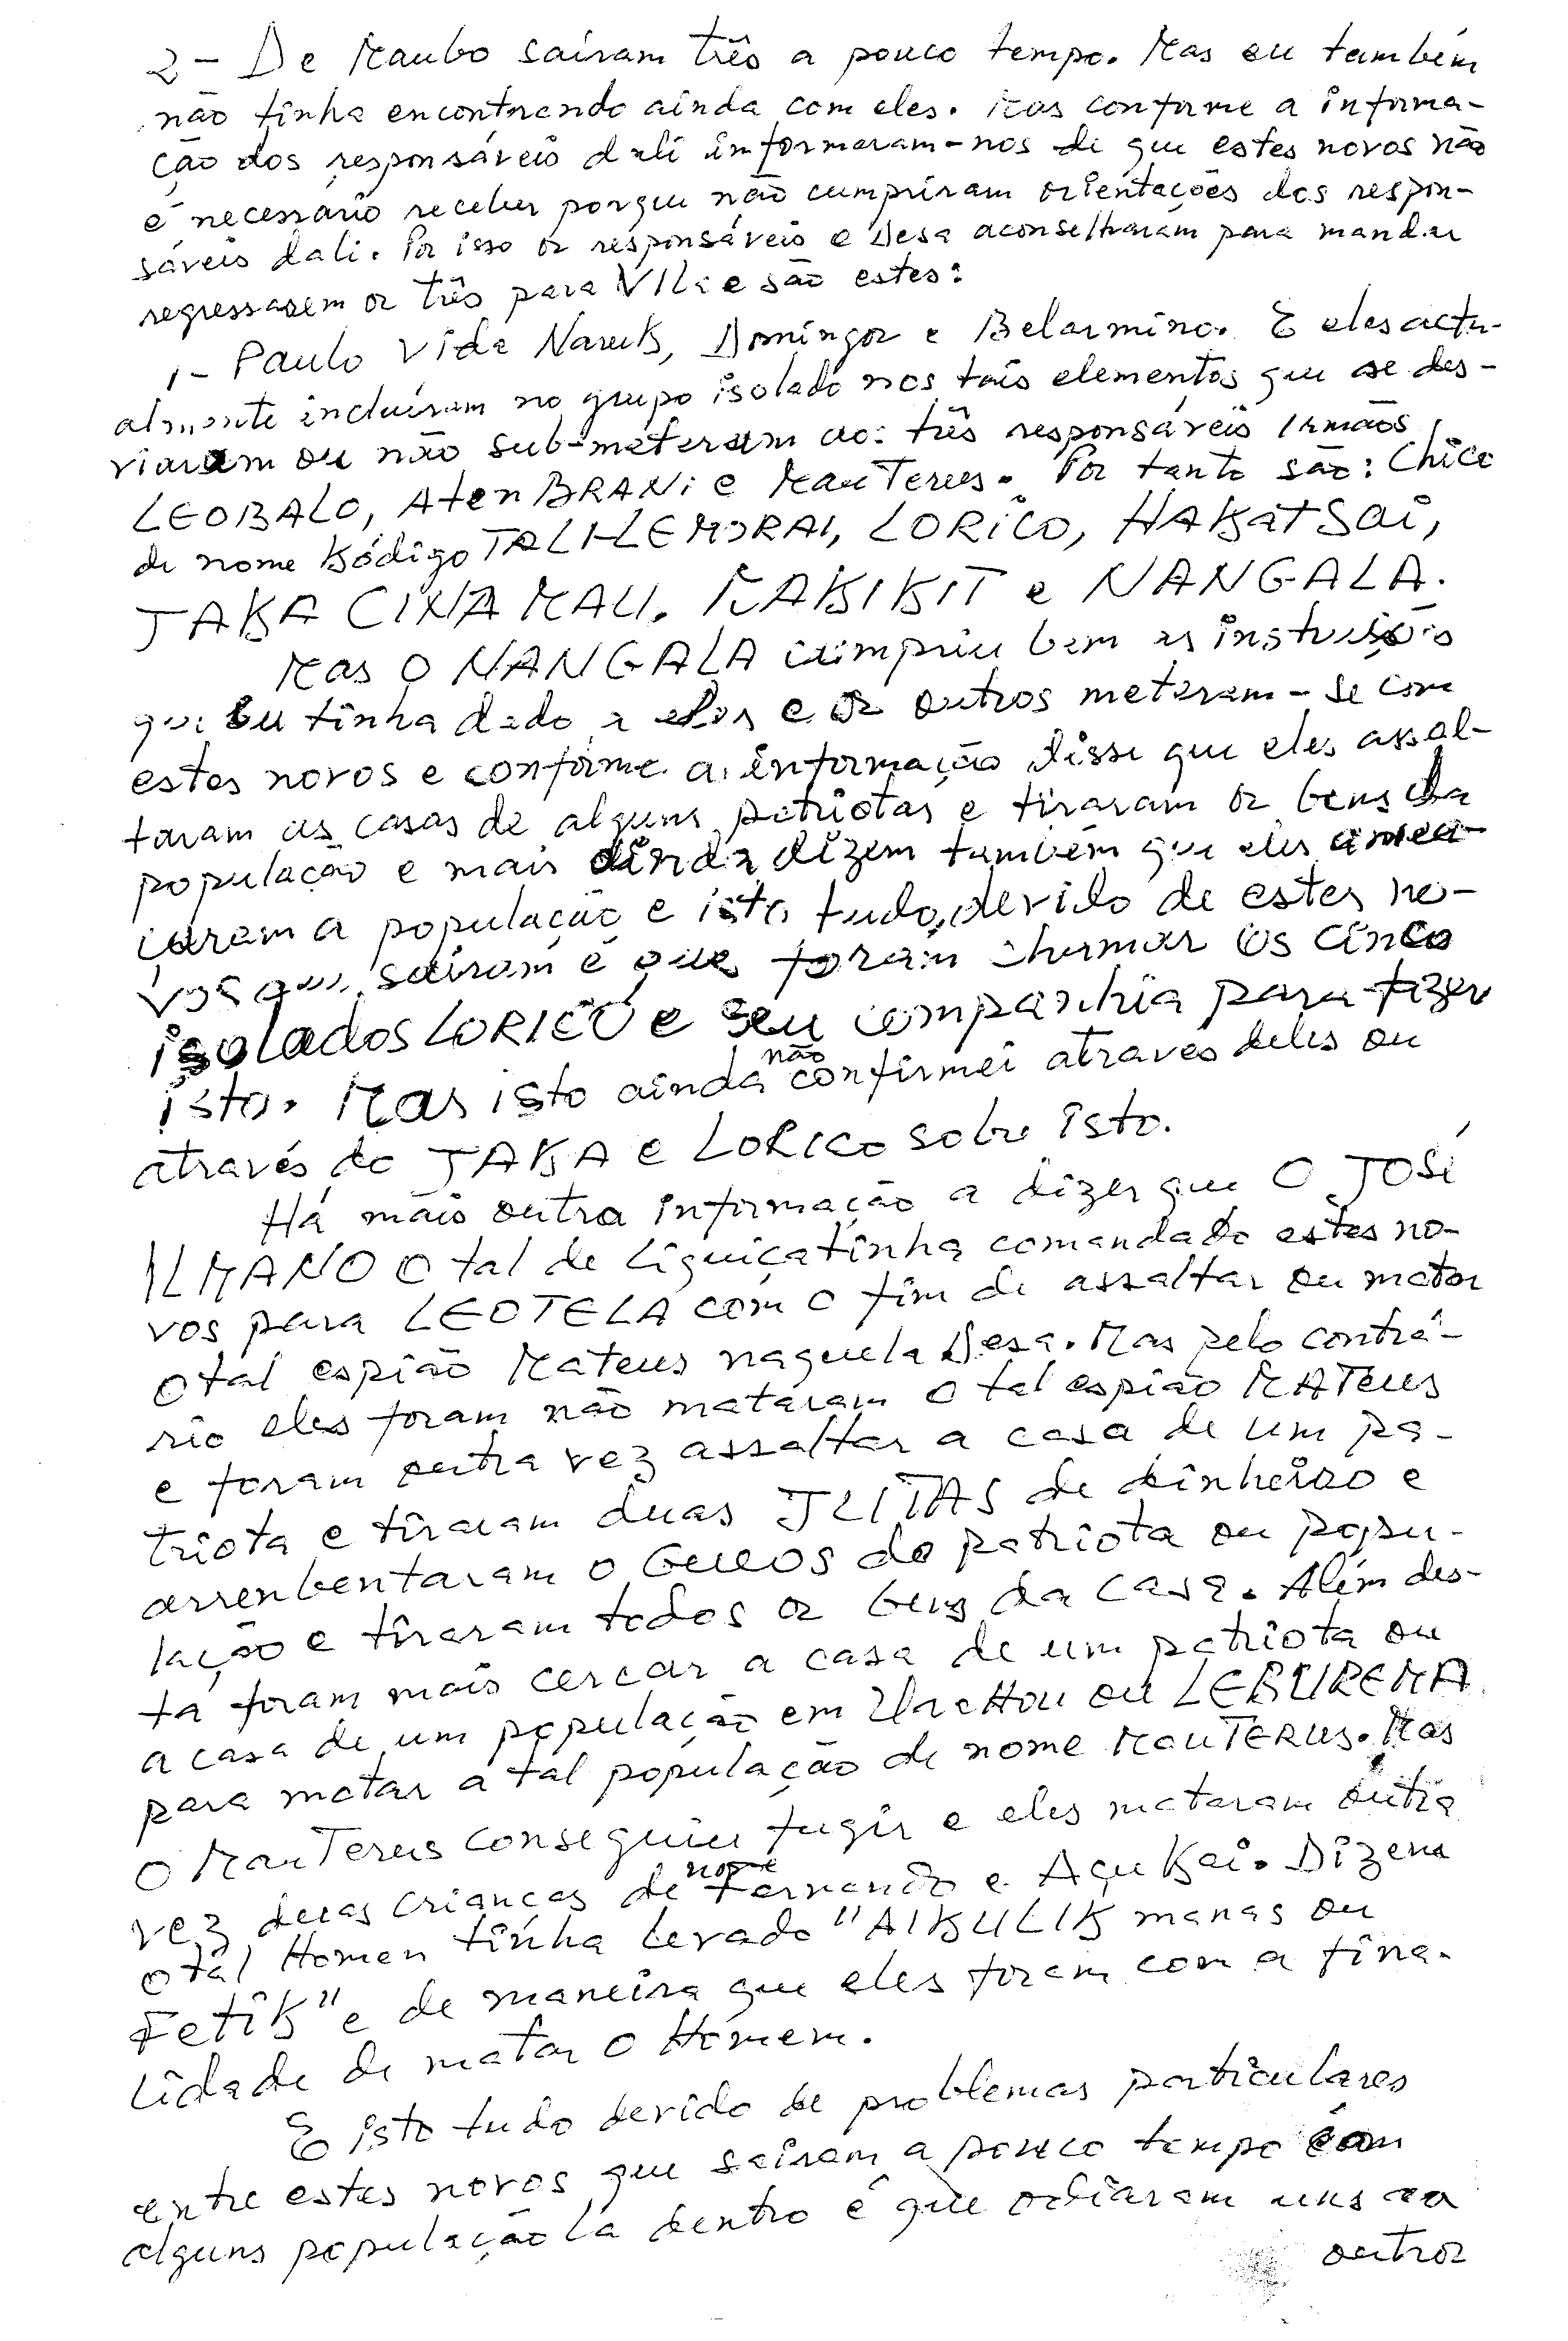 2 - De Maubo saíram três a pouco tempo. Mas eu também
não tinha encontrando ainda com eles. Mas conforme a informa-
ção dos responsáveis dali informaram-nos de que estes novos não
é necessário receber porque não cumpriram orientações dos respon-
sáveis dali. Por isso os responsáveis e Desa aconselharam para mandar
regressarem os três para Vila e são estes:
1 - Paulo Vida Naruk, Domingos e Belarmino. E eles actu-
almente incluíram no grupo isolado nos tais elementos que se des-
viaram ou não sub-meteram aos três responsáveis Irmãos
LEOBALO, Aten BRANi e MauTerus. Por tanto são: Chico
de nome Kódigo TALI-LEMORAI, LORICO, HAKATSAi,
TAKA CINA MAU, MAKIKIT e NANGALA.
Mas O NANGALA cumpriu bem as instruções
que Eu tinha dado a eles e os outros meteram-se com
estes novos e conforme a informação disse que eles assal-
taram as casas de alguns patriotas e tiraram os bens da
população e mais ainda dizem também que eles amea-
çaram a população e isto tudo, devido de estes no-
vos que saíram é que foram chamar os cinco
isolados LORICO e seu companhia para fazer
isto. Mas isto ainda não confirmei através deles ou
através do TAKA e LORICO sobre isto.
Há mais outra informação a dizer que O JOSÉ
ILMANO O tal de Liquiçatinha comandado estes no-
vos para LEOTELA com o fim de assaltar ou matar
O tal espião Mateus naquela Desa. Mas pelo contrá-
rio eles foram não mataram O tal espião MATeus
e foram outra vez assaltar a casa de um pa-
triota e tiraram duas JUTAS de dinheiro e
arrenbentaram o Gueos do patriota ou popu-
lação e tiraram todos os bens da casa. Além des-
ta foram mais cercar a casa de um patriota ou
a casa de um população em UacHou ou LEBUREMA
para matar a tal população de nome MauTERUS. Mas
O MauTerus conseguiu fugir e eles mataram outra
vez duas crianças de nome Fernando e AçuKai. Dizem
o tal Homen tinha levado "AIKULIK manas ou
FetiK" e de maneira que eles foram com a fina-
lidade de matar O Homem.
E isto tudo devido de problemas particulares
entre estes novos que saíram a pouco tempo com
alguns população lá dentro é que odiaram uns aos
outros